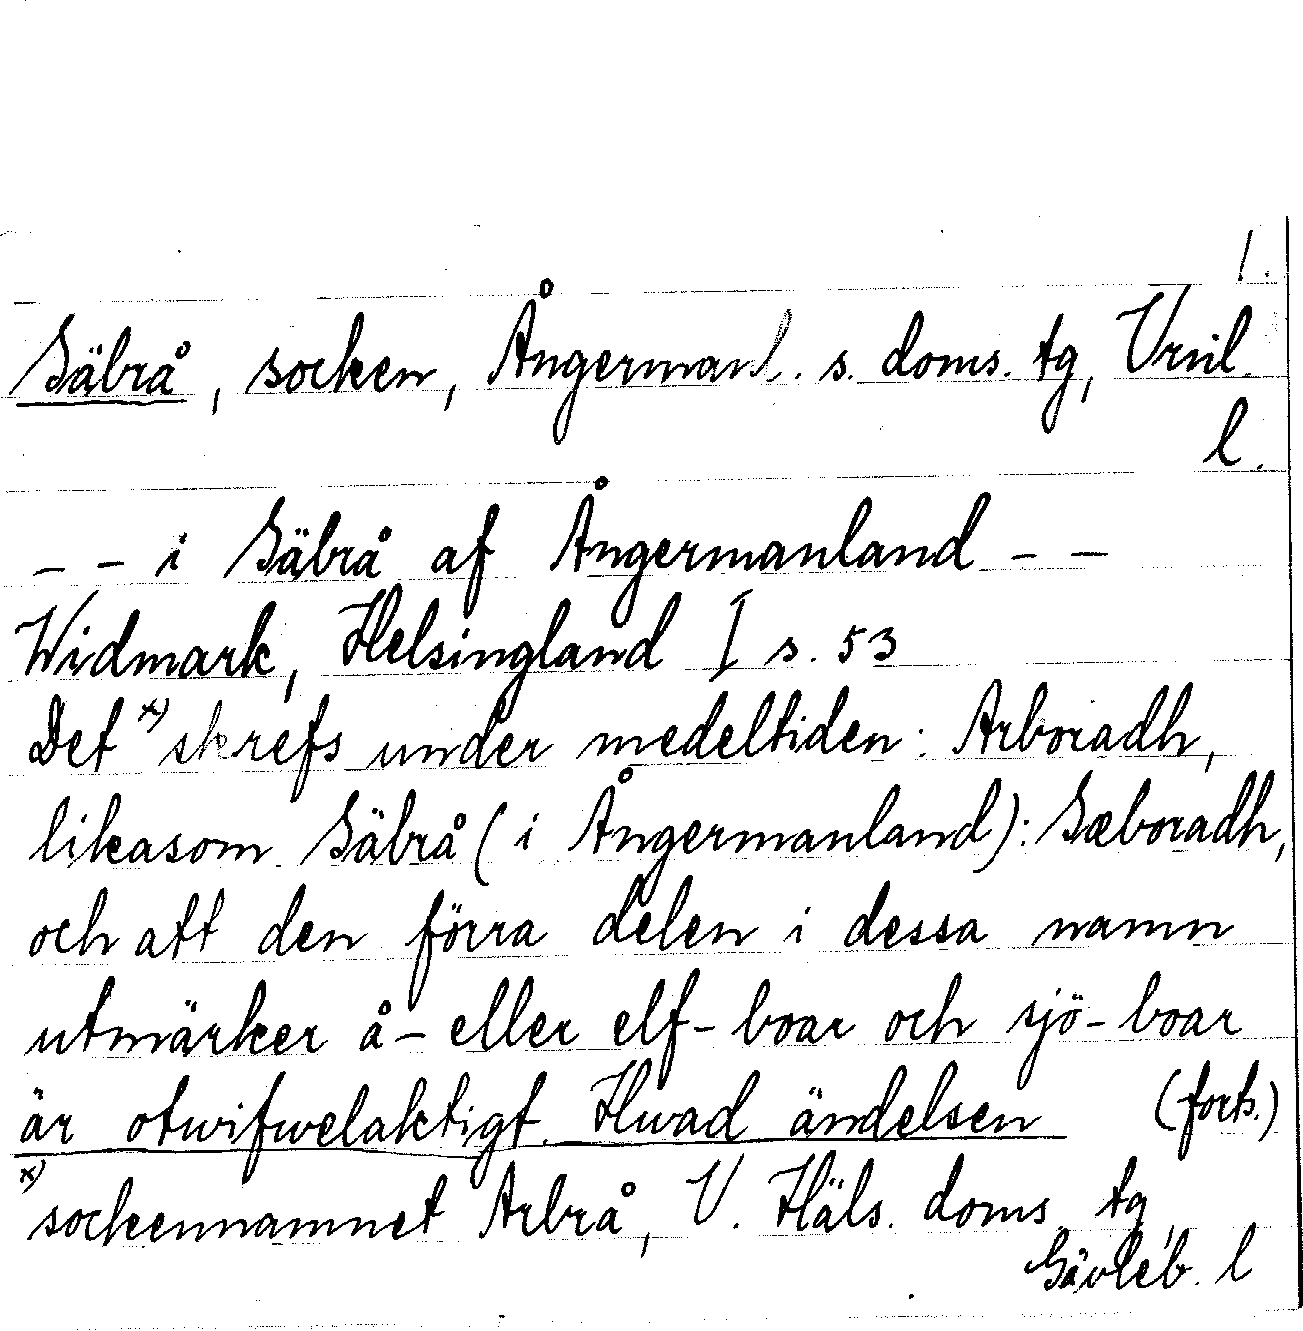 1.
Säbrå, socken, Ångermanl. s. doms. tg, Vrnl.
l.
– – i Säbrå af Ångermanland – –
Widmark, Helsingland I s. 53
Det x) skrefs under medeltiden: Arboradh,
likasom Säbrå (i Ångermanland): Sæboradh,
och att den förra delen i dessa namn
utmärker å- eller elf-boar och sjö-boar
är otwifwelaktigt. Hwad ändelsen (forts.)
x) sockennamnet Arbrå, V. Häls. doms. tg,
Gävleb. l